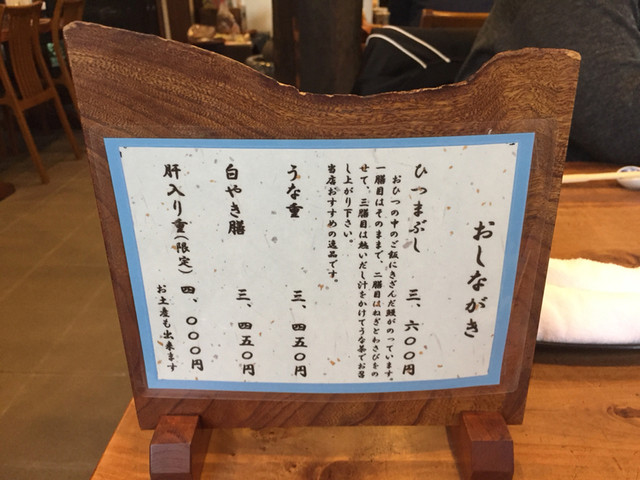 おしながき
ひつまぶし 三、六〇〇円
おひつの中のご飯にきざんだ鰻がのっています。
一膳目はそのままで、二膳目はねぎとわさびをの
せて、三膳目は熱いだし汁をかけてうな茶でお召
し上がり下さい。
当店おすすめの逸品です。
うな重 三、四五〇円
白やき膳 三、四五〇円
肝入り重(限定) 四、〇〇〇円
お土産も出来ます